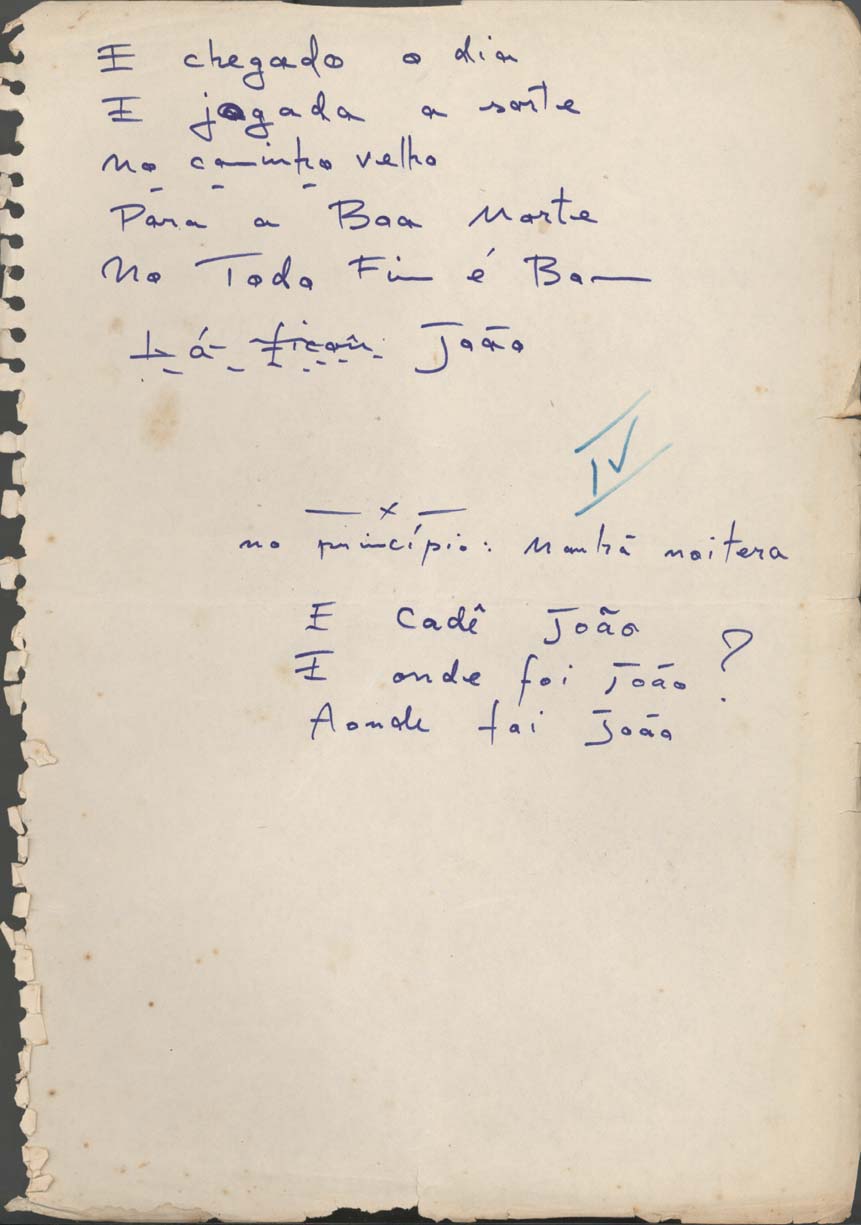 E chegado o dia
E jogada a sorte
no caminho velho
Para a Boa Morte
No Todo Fim é Bom
Lá ficou João
IV
— x —
no princípio: Manhã noitera
E Cadê João
E onde foi João ?
Aonde foi João